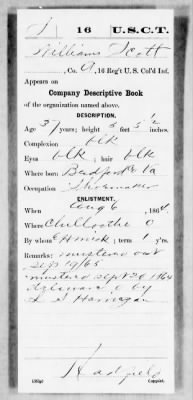 J 16 U.S.C.T.
Williams Scott
, Co. A, 16 Reg't U. S. Col'd Inf.
Appears on
Company Descriptive Book
of the organization named above.
DESCRIPTION.
Age 37 years; height 5 feet 5 1/2 inches.
Complexion blk
Eyes blk; hair blk
Where born Bedford Co Va
Occupation Shoemaker
ENLISTMENT.
When Aug 6, 1864
Where Chillicothe O
By whom; term 1 y'rs.
Remarks: mustered out
Sep 19/65
mustered Sept 20 1864
Hadfield
Copyist.